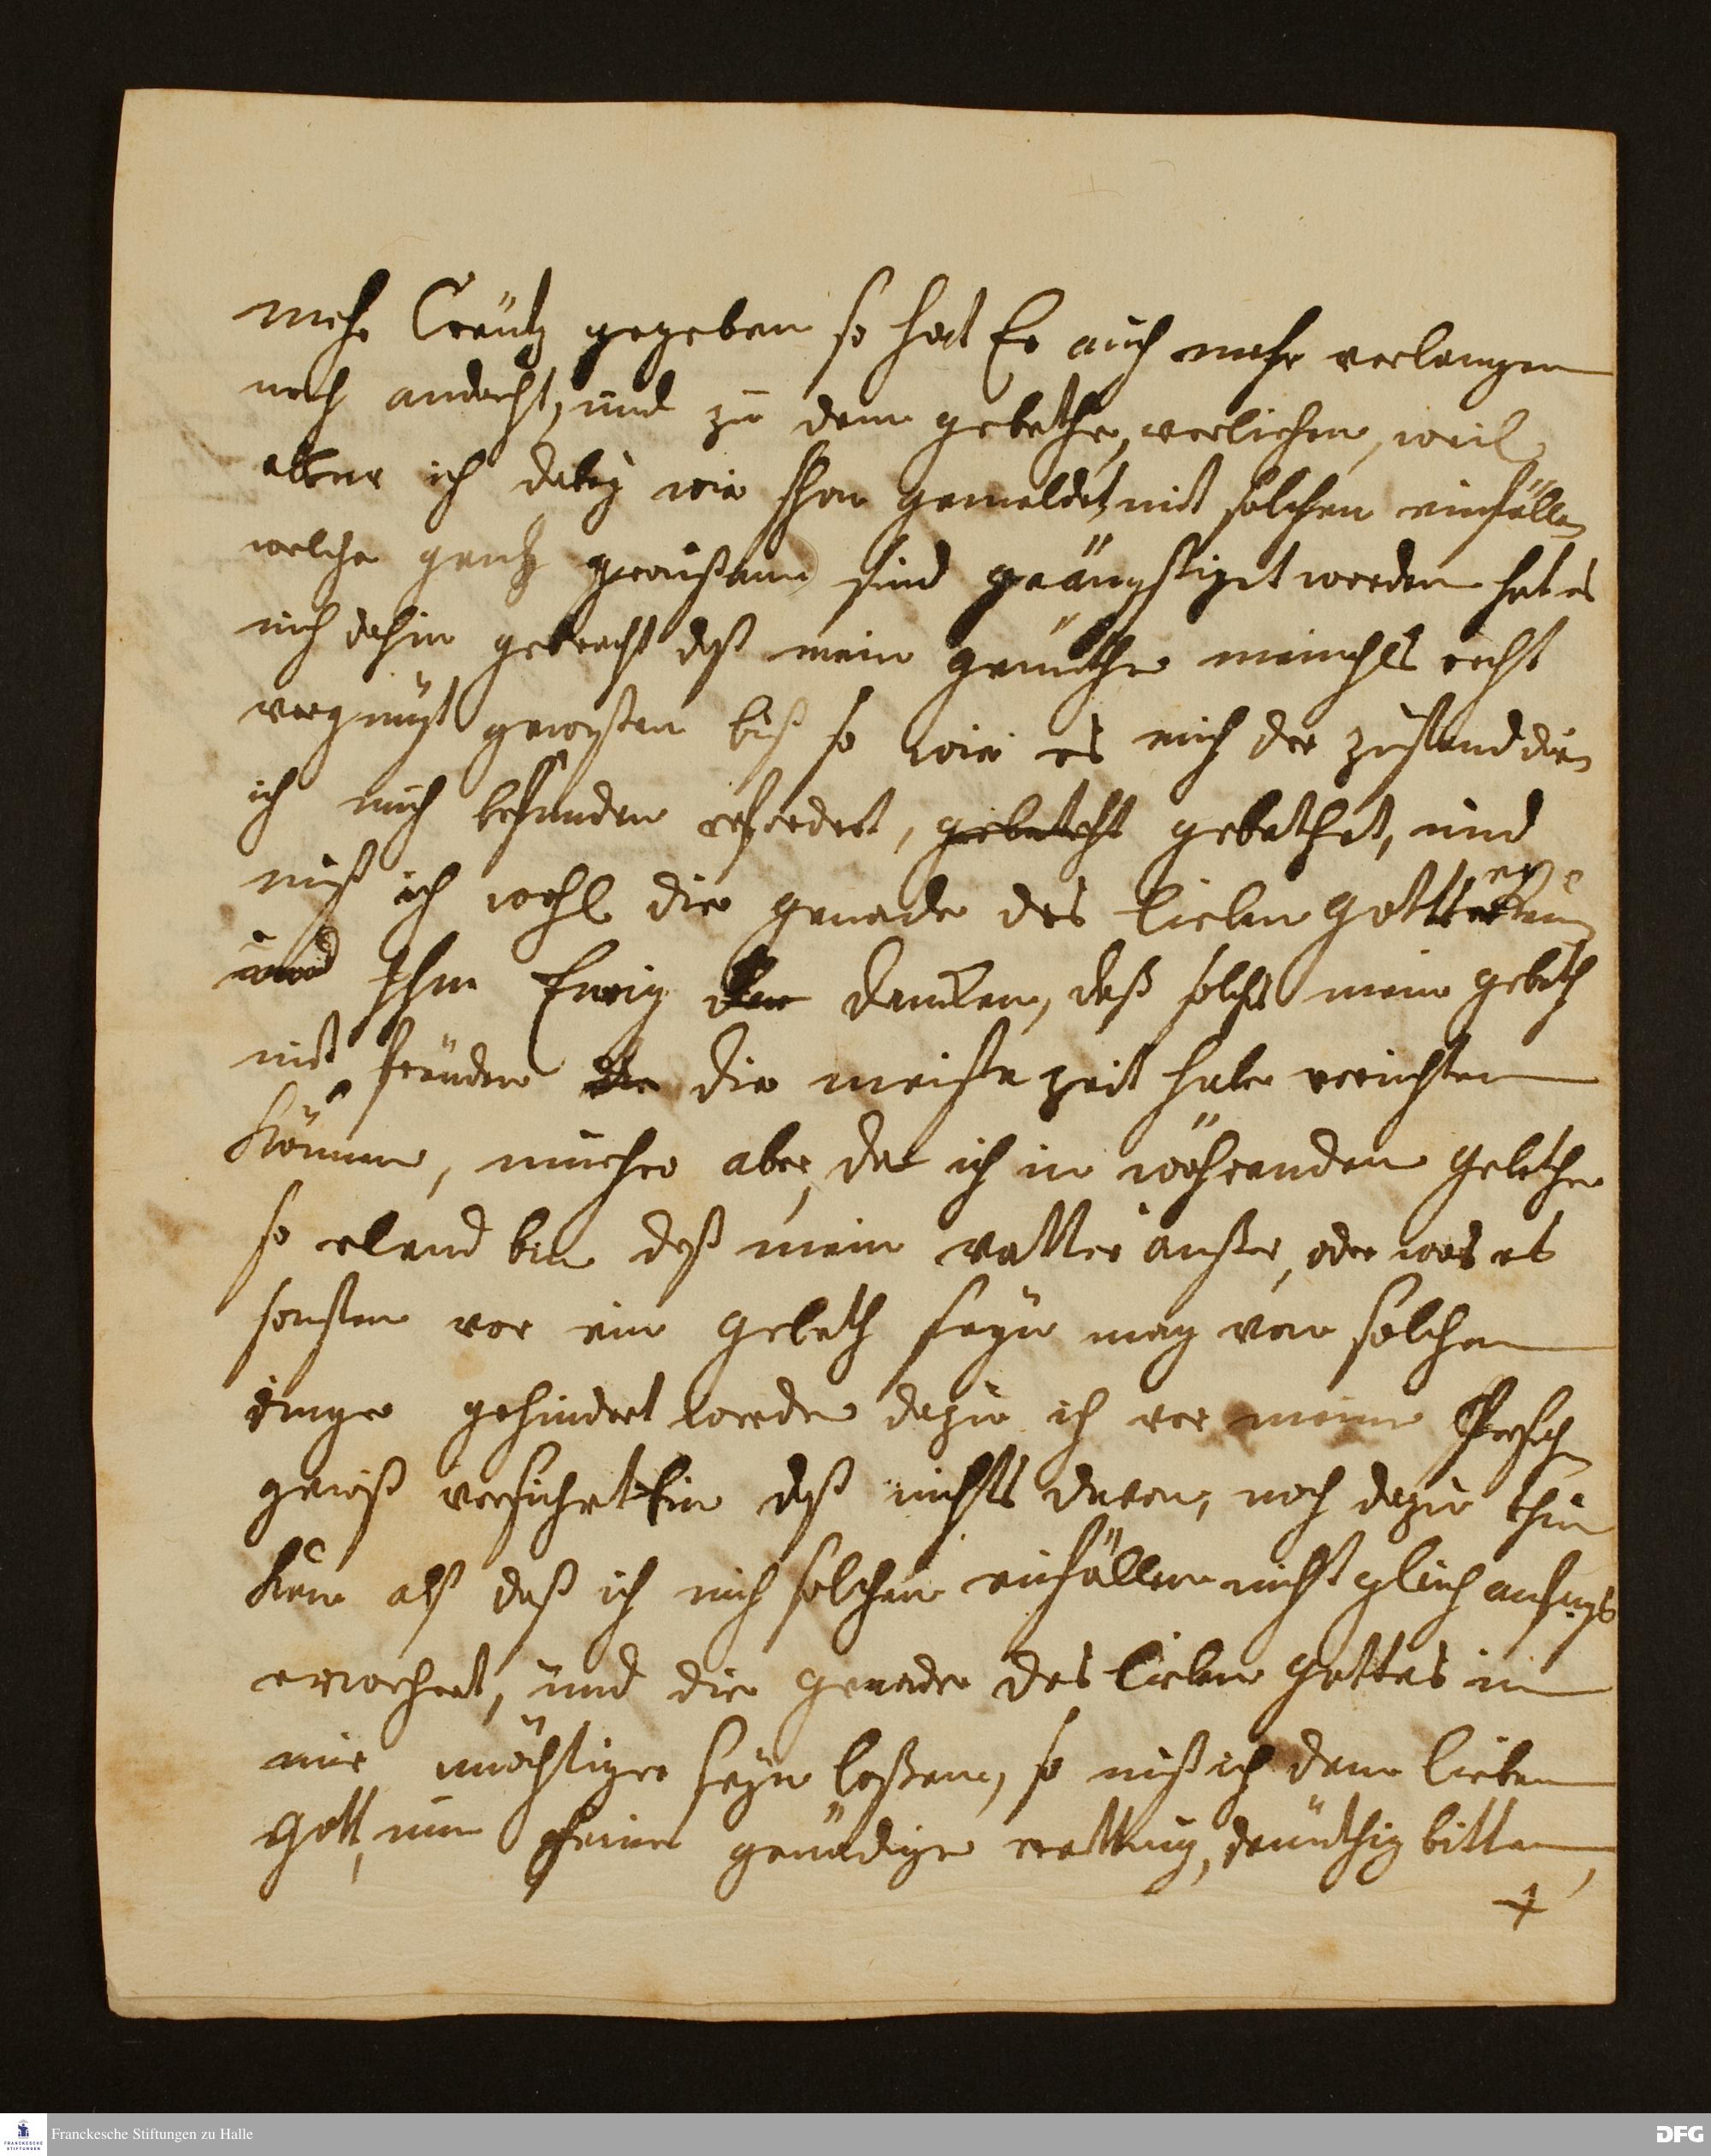 mehr Creütz gegeben so hat Er auch mehr verlangen
nach andacht, und zu dem gebethe, verliehen, weil
aber ich dabeÿ wie schon gemeldet, mit solchen einfällen
welche gantz grausam sind geängstiget worden hat es
mich dahin gebracht daß mein gemüthe niemahls recht
vergnügt gewesen biß so wie es mich der zustand drin
ich mich befunden erfordert, gebetht gebethet, und
muß ich wohl die genade des lieben Gottes
und Ihm Ewig dancken, daß solches mein gebeth
mit freüden die meiste zeit habe verrichten
können, nunhero aber, da ich in währenden Gebethe
so elend bin daß mein vatter unßer, oder was es
sonsten vor ein Gebeth seÿn mag von solchen
dinge gehindert werde dazu ich vor meine Persohn
gewiß versichert bin daß nichts davon, noch dazu thun
kan als daß ich mich solchen einfällen nicht gleich anfangs
erwehret, und die genade des lieben Gottes in
mir mächtiger seÿn laßen, so muß ich den lieben
Gott, um seine genädige rettung, demüthig bitten,
Franckesche Stiftungen zu Halle
DFG
FRANCKESCHE
STIFTUNGEN